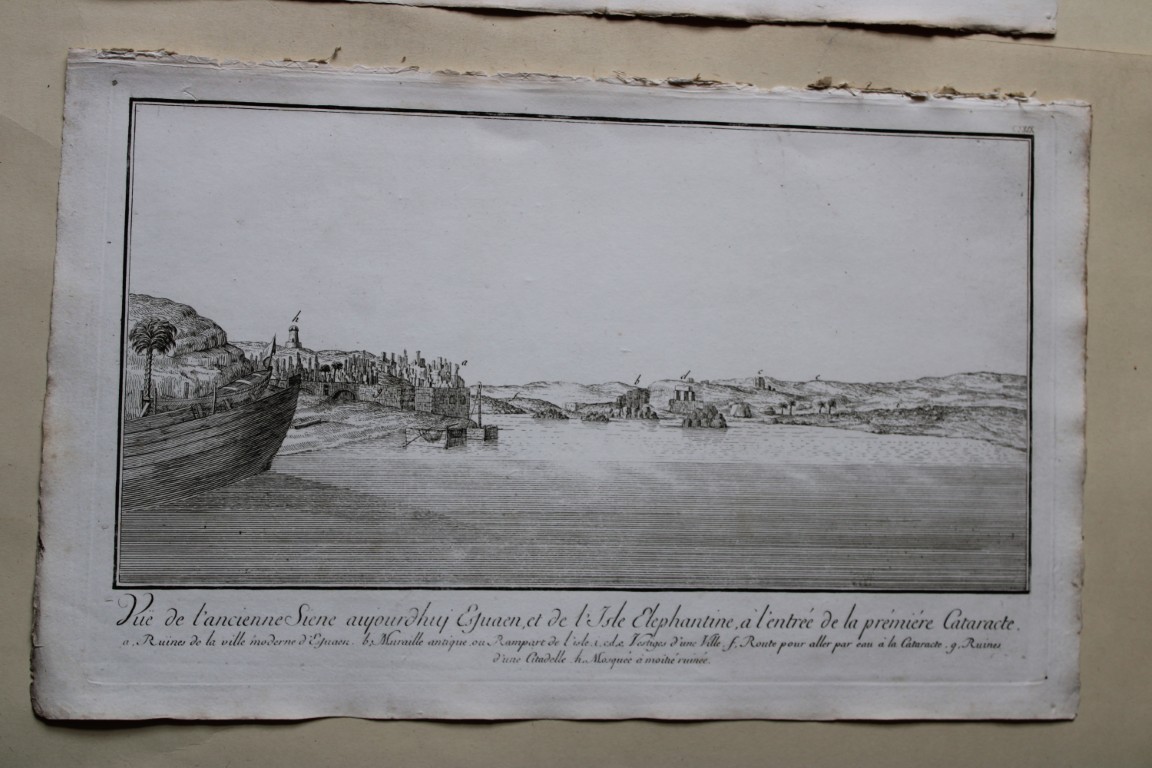 Vüe de l'ancienne Siene aujourdhuij Essuaen, et de l'Isle Elephantine, à l'entrée de la prémiére Cataracte.
a. Ruines de la ville moderne d'Essuaen. b. Muraille antique ou Rampart de l'isle. c.d.e. Vestiges d'une Ville. f. Route pour aller par eau à la Cataracte. g. Ruines
d'une Citadelle. h. Mosquée à moitié ruinée.
h
a
b
d